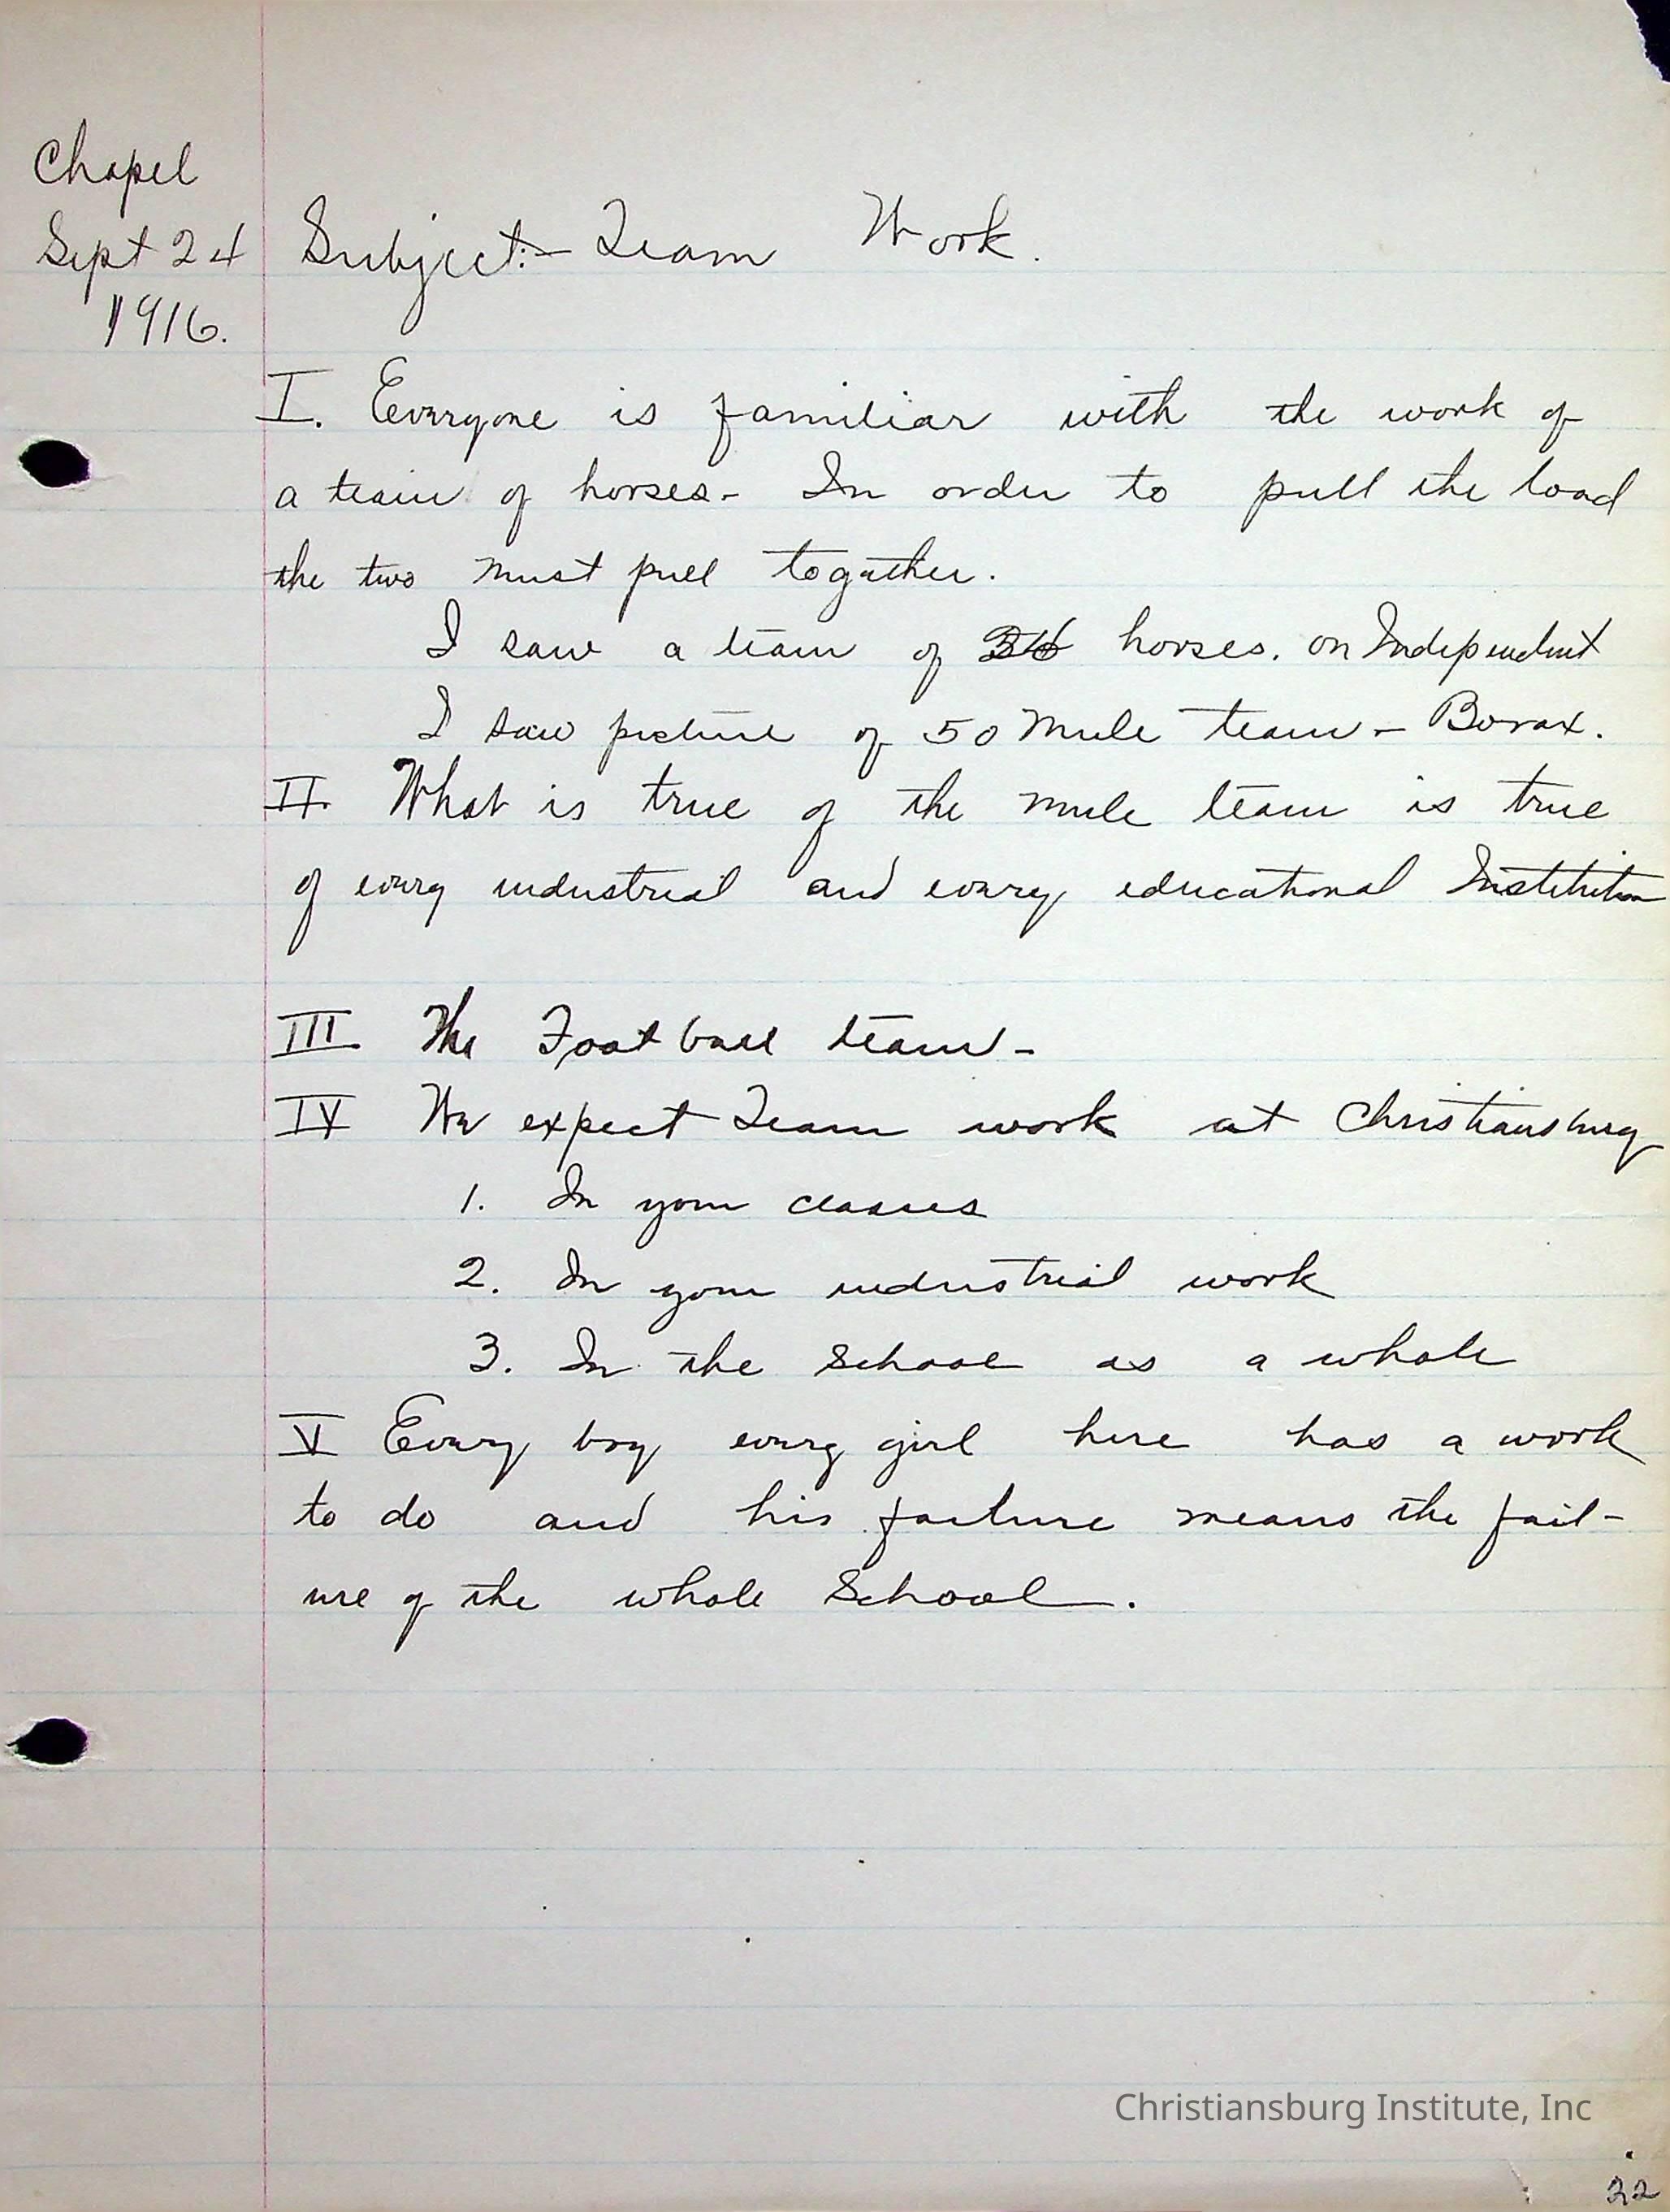 Chapel
Sept 24
1916.
Subject:- Team Work.
I. Everyone is familiar with the work of
a team of horses- In order to pull the load
the two must pull together.
I saw a team of horses. on Independent
I saw picture of 50 Mule team - Borax.
II. What is true of the mule team is true
of every industrial and every educational Institution
III. The Foot ball team-
IV We expect Team work at Christiansburg
1. In your classes
2. In your industrial work
3. In the School as a whole
V Every boy every girl here has a work
to do and his failure means the fail-
ure of the whole School.
Christiansburg Institute, Inc
22